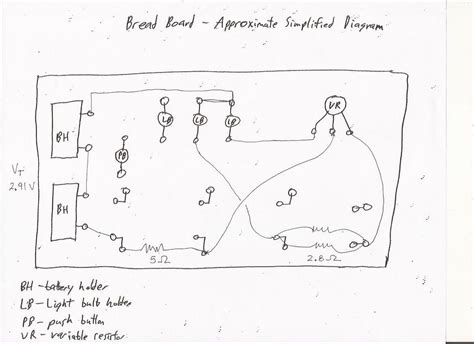 Bread Board - Approximate Simplified Diagram
VR
LB LB LB
BH
PB
VT
2.91V
BH
5Ω
2.8Ω
BH - battery holder
LB - Light bulb holder
PB - push button
VR - variable resistor